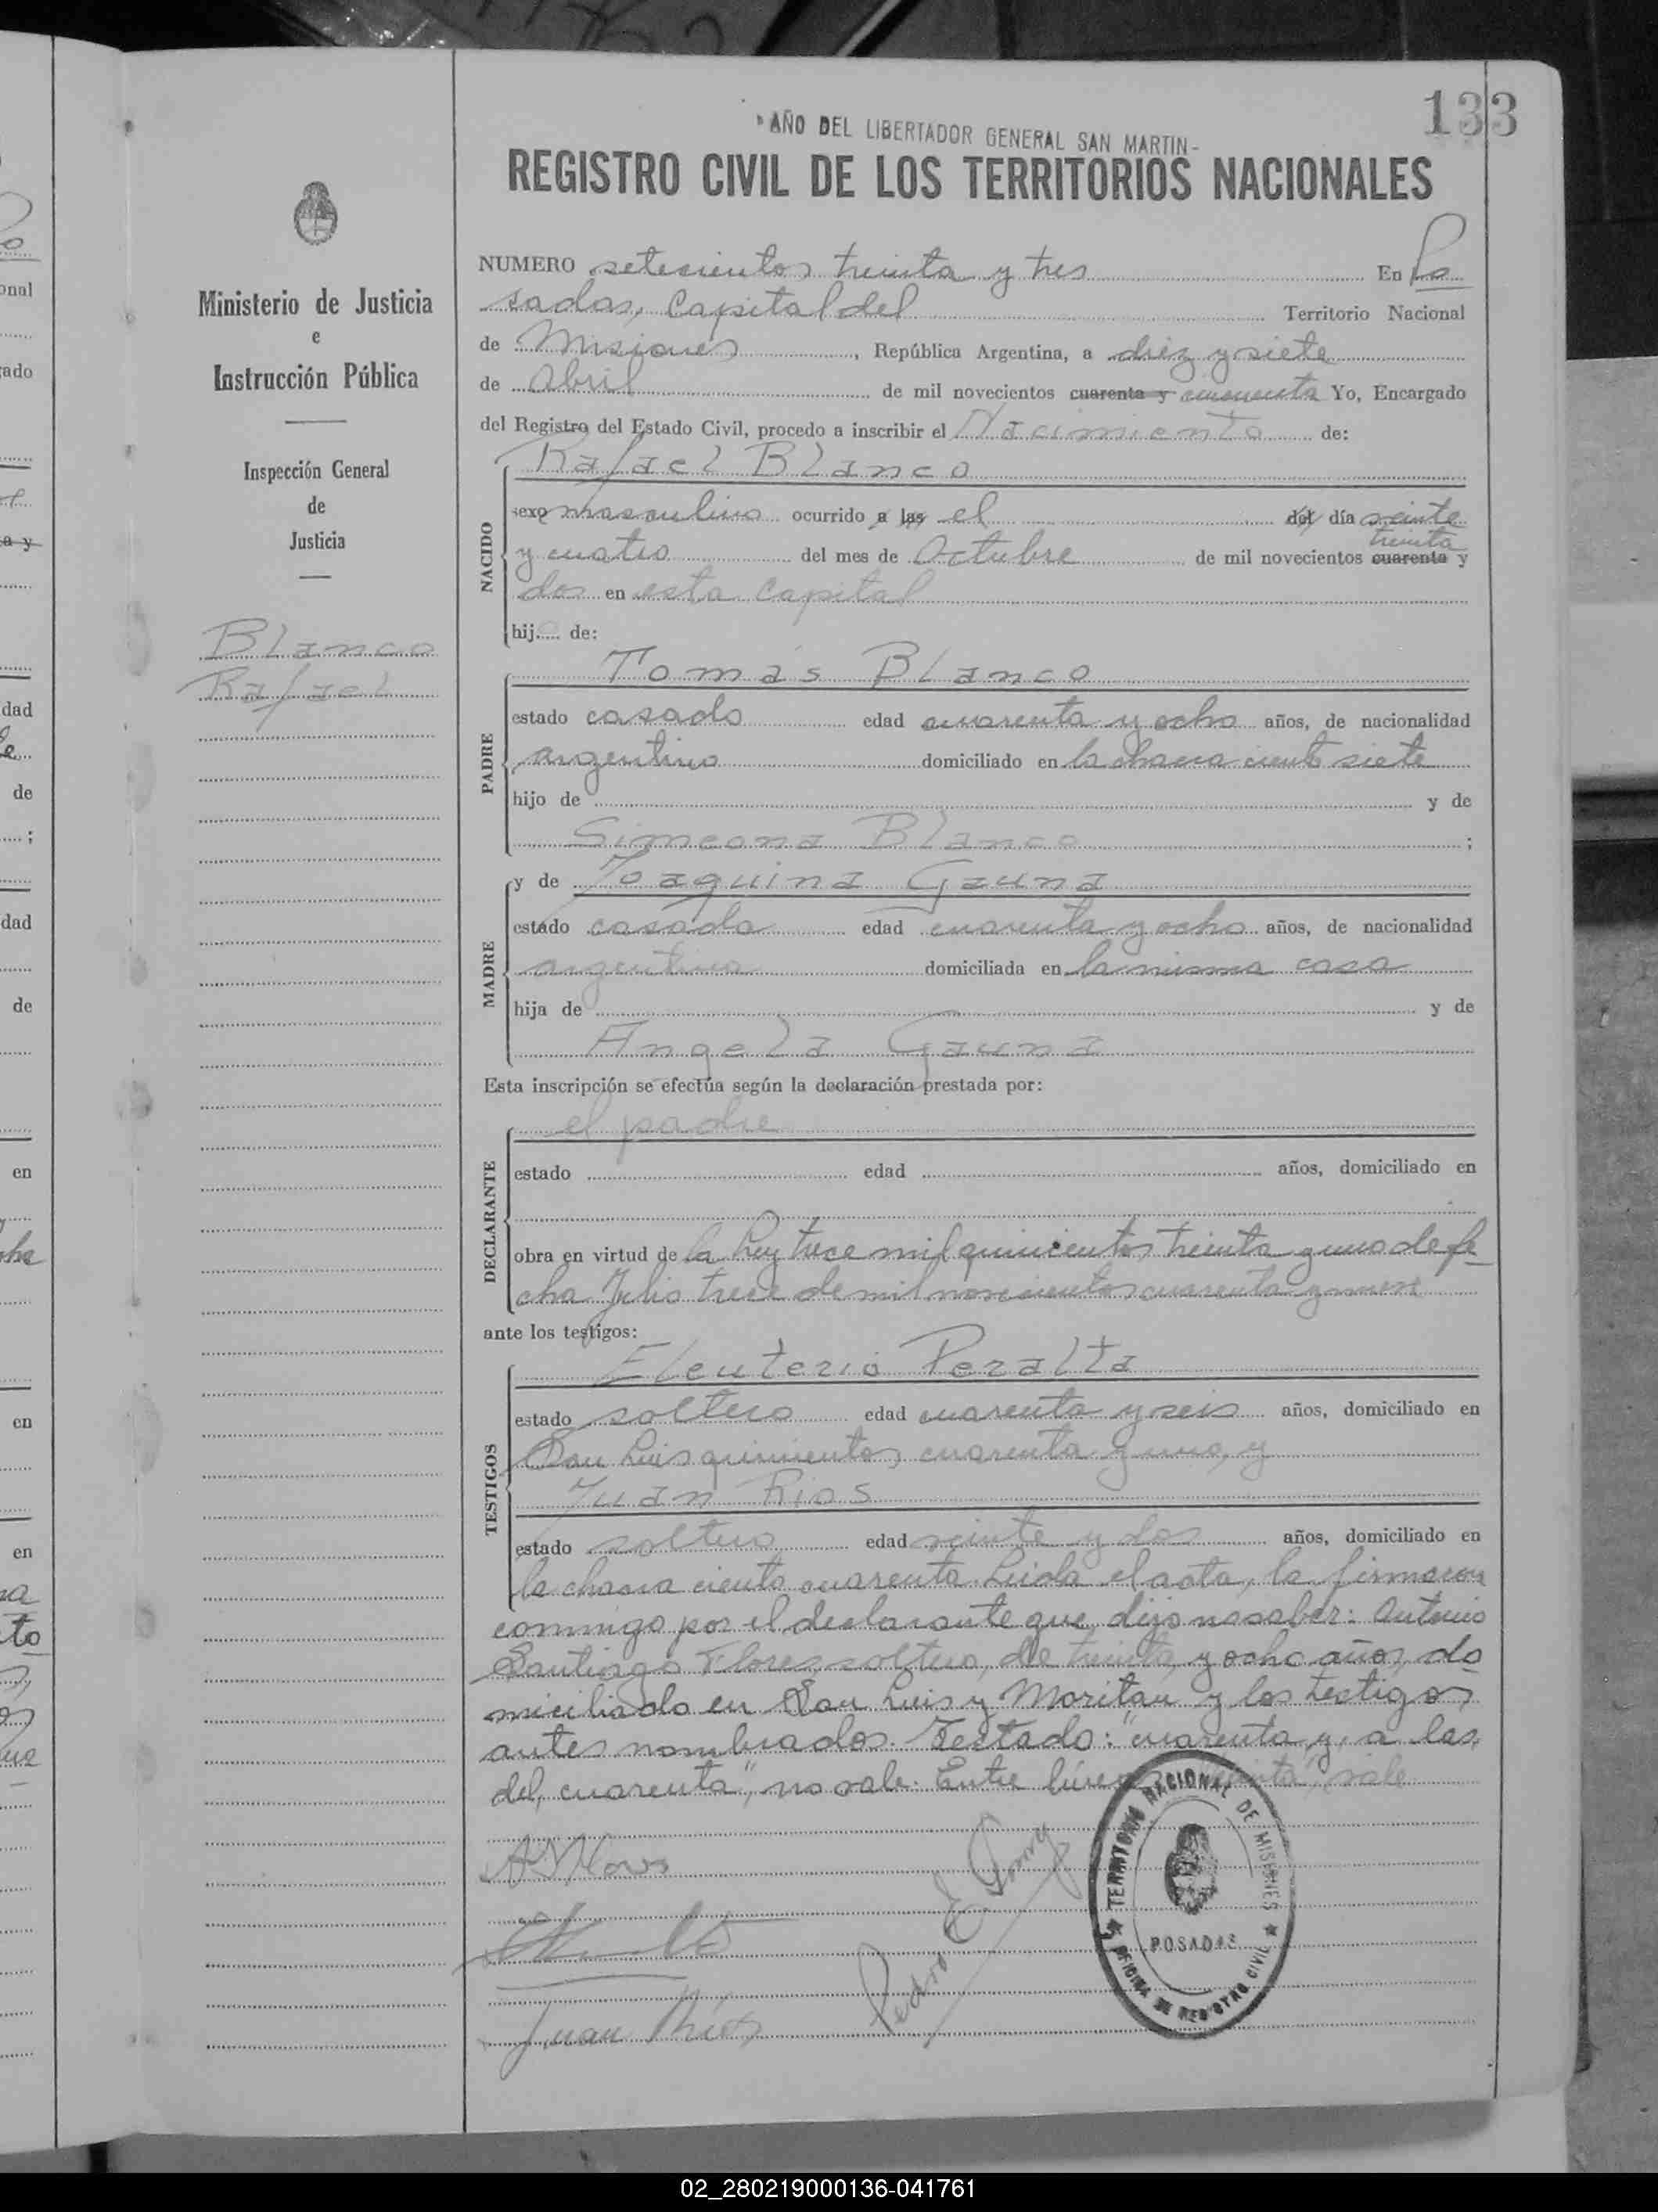 133
"AÑO DEL LIBERTADOR GENERAL SAN MARTIN-
REGISTRO CIVIL DE LOS TERRITORIOS NACIONALES
Ministerio de Justicia
e
Instrucción Pública
Inspección General
de
Justicia
Blanco
Rafael
NUMERO setecientos treinta y tres En Po
sadas, Capital del Territorio Nacional
de Misiones, República Argentina, a diez y siete
de abril de mil novecientos cuarenta y cincuenta Yo, Encargado
del Registro del Estado Civil, procedo a inscribir el Nacimiento de:
NACIDO
Rafael Blanco
sexo masculino ocurrido a las el del día veinte
treinta
y cuatro del mes de Octubre de mil novecientos cuarenta y
dos en esta Capital
hijo de:
PADRE
Tomás Blanco
estado casado edad cuarenta y ocho años, de nacionalidad
argentino domiciliado en la chacra ciento siete
hijo de y de
Simeona Blanco;
MADRE
y de Joaquina Gauna
estado casada edad cuarenta y ocho años, de nacionalidad
argentina domiciliada en la misma casa
hija de y de
Angela Gauna
Esta inscripción se efectúa según la declaración prestada por:
DECLARANTE
el padre
estado edad años, domiciliado en
obra en virtud de la Ley trece mil quinientos treinta y uno de fe
cha Julio trece de mil novecientos cuarenta y nueve
ante los testigos:
TESTIGOS
Eleuterio Peralta
estado soltero edad cuarenta y seis años, domiciliado en
San Luis quinientos cuarenta y uno, y
Juan Rios
estado soltero edad veinte y dos años, domiciliado en
la chacra ciento cuarenta. Leida el acta, la firmaron
conmigo por el declarante que dijo no saber: Antonio
Santiago Flores, soltero, de treinta y ocho años, do
miciliado en San Luis y Moritan y los testigos
antes nombrados. Testado: "cuarenta y, a las,
del, cuarenta", no vale. Entre líneas "treinta", vale
Juan Rios
Pedro E.
TERRITORIO NACIONAL DE MISIONES
POSADAS
OFICINA DE REGISTRO CIVIL
02_280219000136-041761